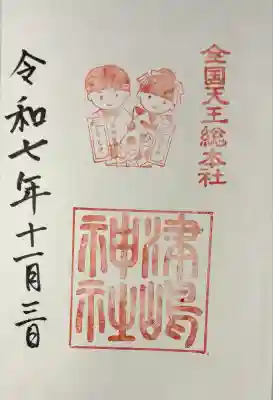 全国天王総本社
津嶋神社
令和七年十一月三日